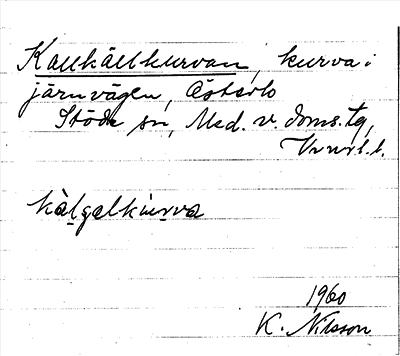 Kallkällkurvan, kurva i
järnvägen, Österlo
Stöde sn, Med. v. doms. tg,
Vnrl. l.
kàlgalkurva
1960
K. Nilsson